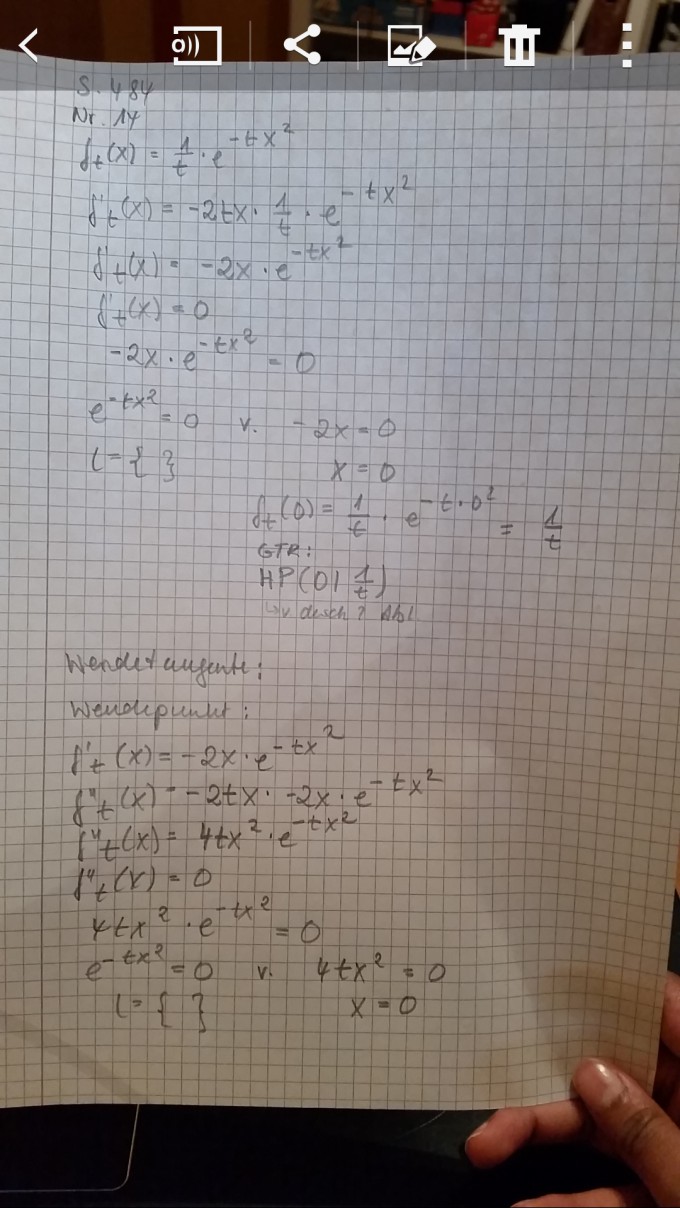 S. 484
Nr. 17
f_t(x) = 1/t · e^(-tx²)
f'_t(x) = -2tx · 1/t · e^(-tx²)
f'_t(x) = -2x · e^(-tx²)
f'_t(x) = 0
-2x · e^(-tx²) = 0
e^(-tx²) = 0 v. -2x = 0
L = { } x = 0
f_t(0) = 1/t · e^(-t·0²) = 1/t
GTR:
HP(0| 1/t)
Wendetangente:
Wendepunkt:
f'_t(x) = -2x · e^(-tx²)
f''_t(x) = -2tx · -2x · e^(-tx²)
f''_t(x) = 4tx² · e^(-tx²)
f''_t(x) = 0
4tx² · e^(-tx²) = 0
e^(-tx²) = 0 v. 4tx² = 0
L = { } x = 0